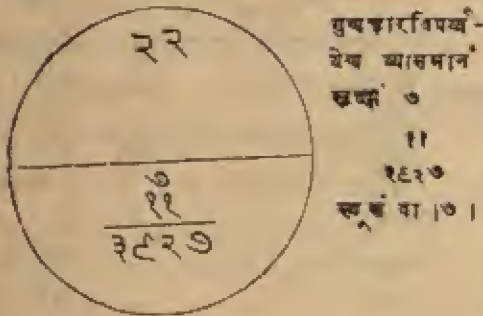 २२
७
११
३९२७
गुणहारविपर्य्य-
येण व्यासमानं
सूक्ष्मं ७
११
३९२७
स्थूलं वा ।७।